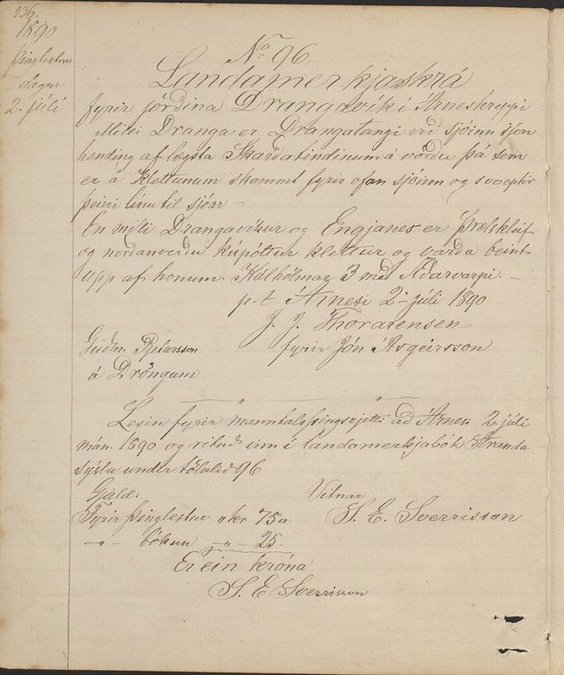 136.
1890
Þinglestrar
dagur
2. júlí
No 96.
Landamerkjaskrá
fyrir jörðina Drangavík í Árneshreppi
Milli Dranga er Drangatangi við sjóinn sjón
hending af lægsta Skarðatindinum á vörðu þá sem
er á Klettunum skammt fyrir ofan sjóinn og svo eptir
þeirri línu til sjóar —
En milli Drangavíkur og Engjanes er Þrælskleif
og norðanverðu kúpóttur klettur og varða beint
upp af honum. Kálhólmar 3 með Æðarvarpi. —
p. t. Árnesi 2. júlí 1890
J. J. Thorarensen
fyrir Jón Ásgeirsson
Guðm. Pjetursson
á Dröngum
Lesin fyrir manntalsþingsrjetti að Árnesi 2. júlí
mán. 1890 og rituð inn í landamerkjabók Stranda
sýslu undir tölulið 96
Gjald: Vitnar
Fyrir þinglestur " kr 75 a S. E. Sverrisson
— " — bókun — " — 25 -
Er ein króna
S. E. Sverrisson